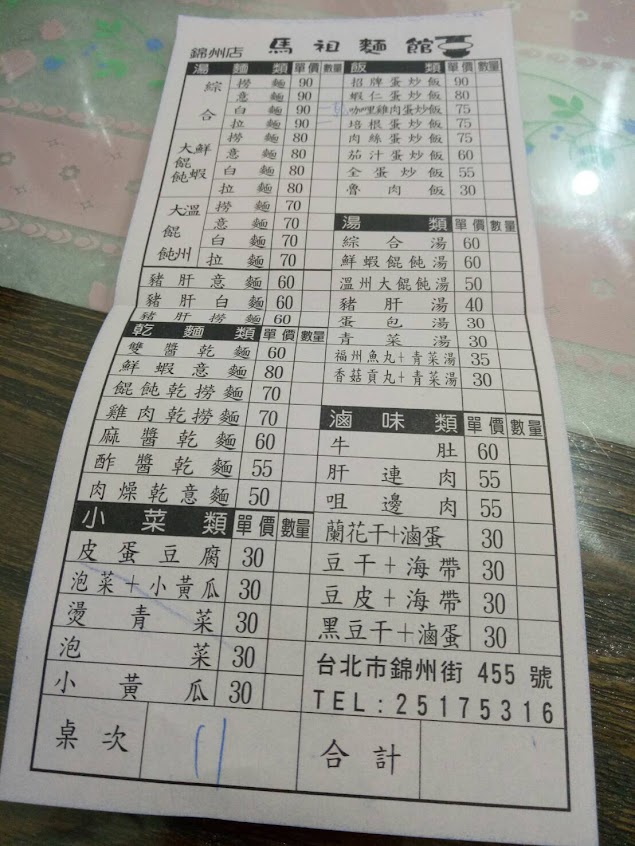 錦州店 馬祖麵館
湯麵類 單價 數量
綜合 撈麵 90
意麵 90
白麵 90
拉麵 90
大鮮餛蝦飩 撈麵 80
意麵 80
白麵 80
拉麵 80
大溫餛飩州 撈麵 70
意麵 70
白麵 70
拉麵 70
豬肝意麵 60
豬肝白麵 60
豬肝撈麵 60
乾麵類 單價 數量
雙醬乾麵 60
鮮蝦意麵 80
餛飩乾撈麵 70
雞肉乾撈麵 70
麻醬乾麵 60
酢醬乾麵 55
肉燥乾意麵 50
小菜類 單價 數量
皮蛋豆腐 30
泡菜+小黃瓜 30
燙青菜 30
泡菜 30
小黃瓜 30
飯類 單價 數量
招牌蛋炒飯 90
蝦仁蛋炒飯 80
咖哩雞肉蛋炒飯 75
培根蛋炒飯 75
肉絲蛋炒飯 75
茄汁蛋炒飯 60
全蛋炒飯 55
魯肉飯 30
湯類 單價 數量
綜合湯 60
鮮蝦餛飩湯 60
溫州大餛飩湯 50
豬肝湯 40
蛋包湯 30
青菜湯 30
福州魚丸+青菜湯 35
香菇貢丸+青菜湯 30
滷味類 單價 數量
牛肚 60
肝連肉 55
咀邊肉 55
蘭花干+滷蛋 30
豆干+海帶 30
豆皮+海帶 30
黑豆干+滷蛋 30
台北市錦州街 455 號
TEL:25175316
桌次 11 合計